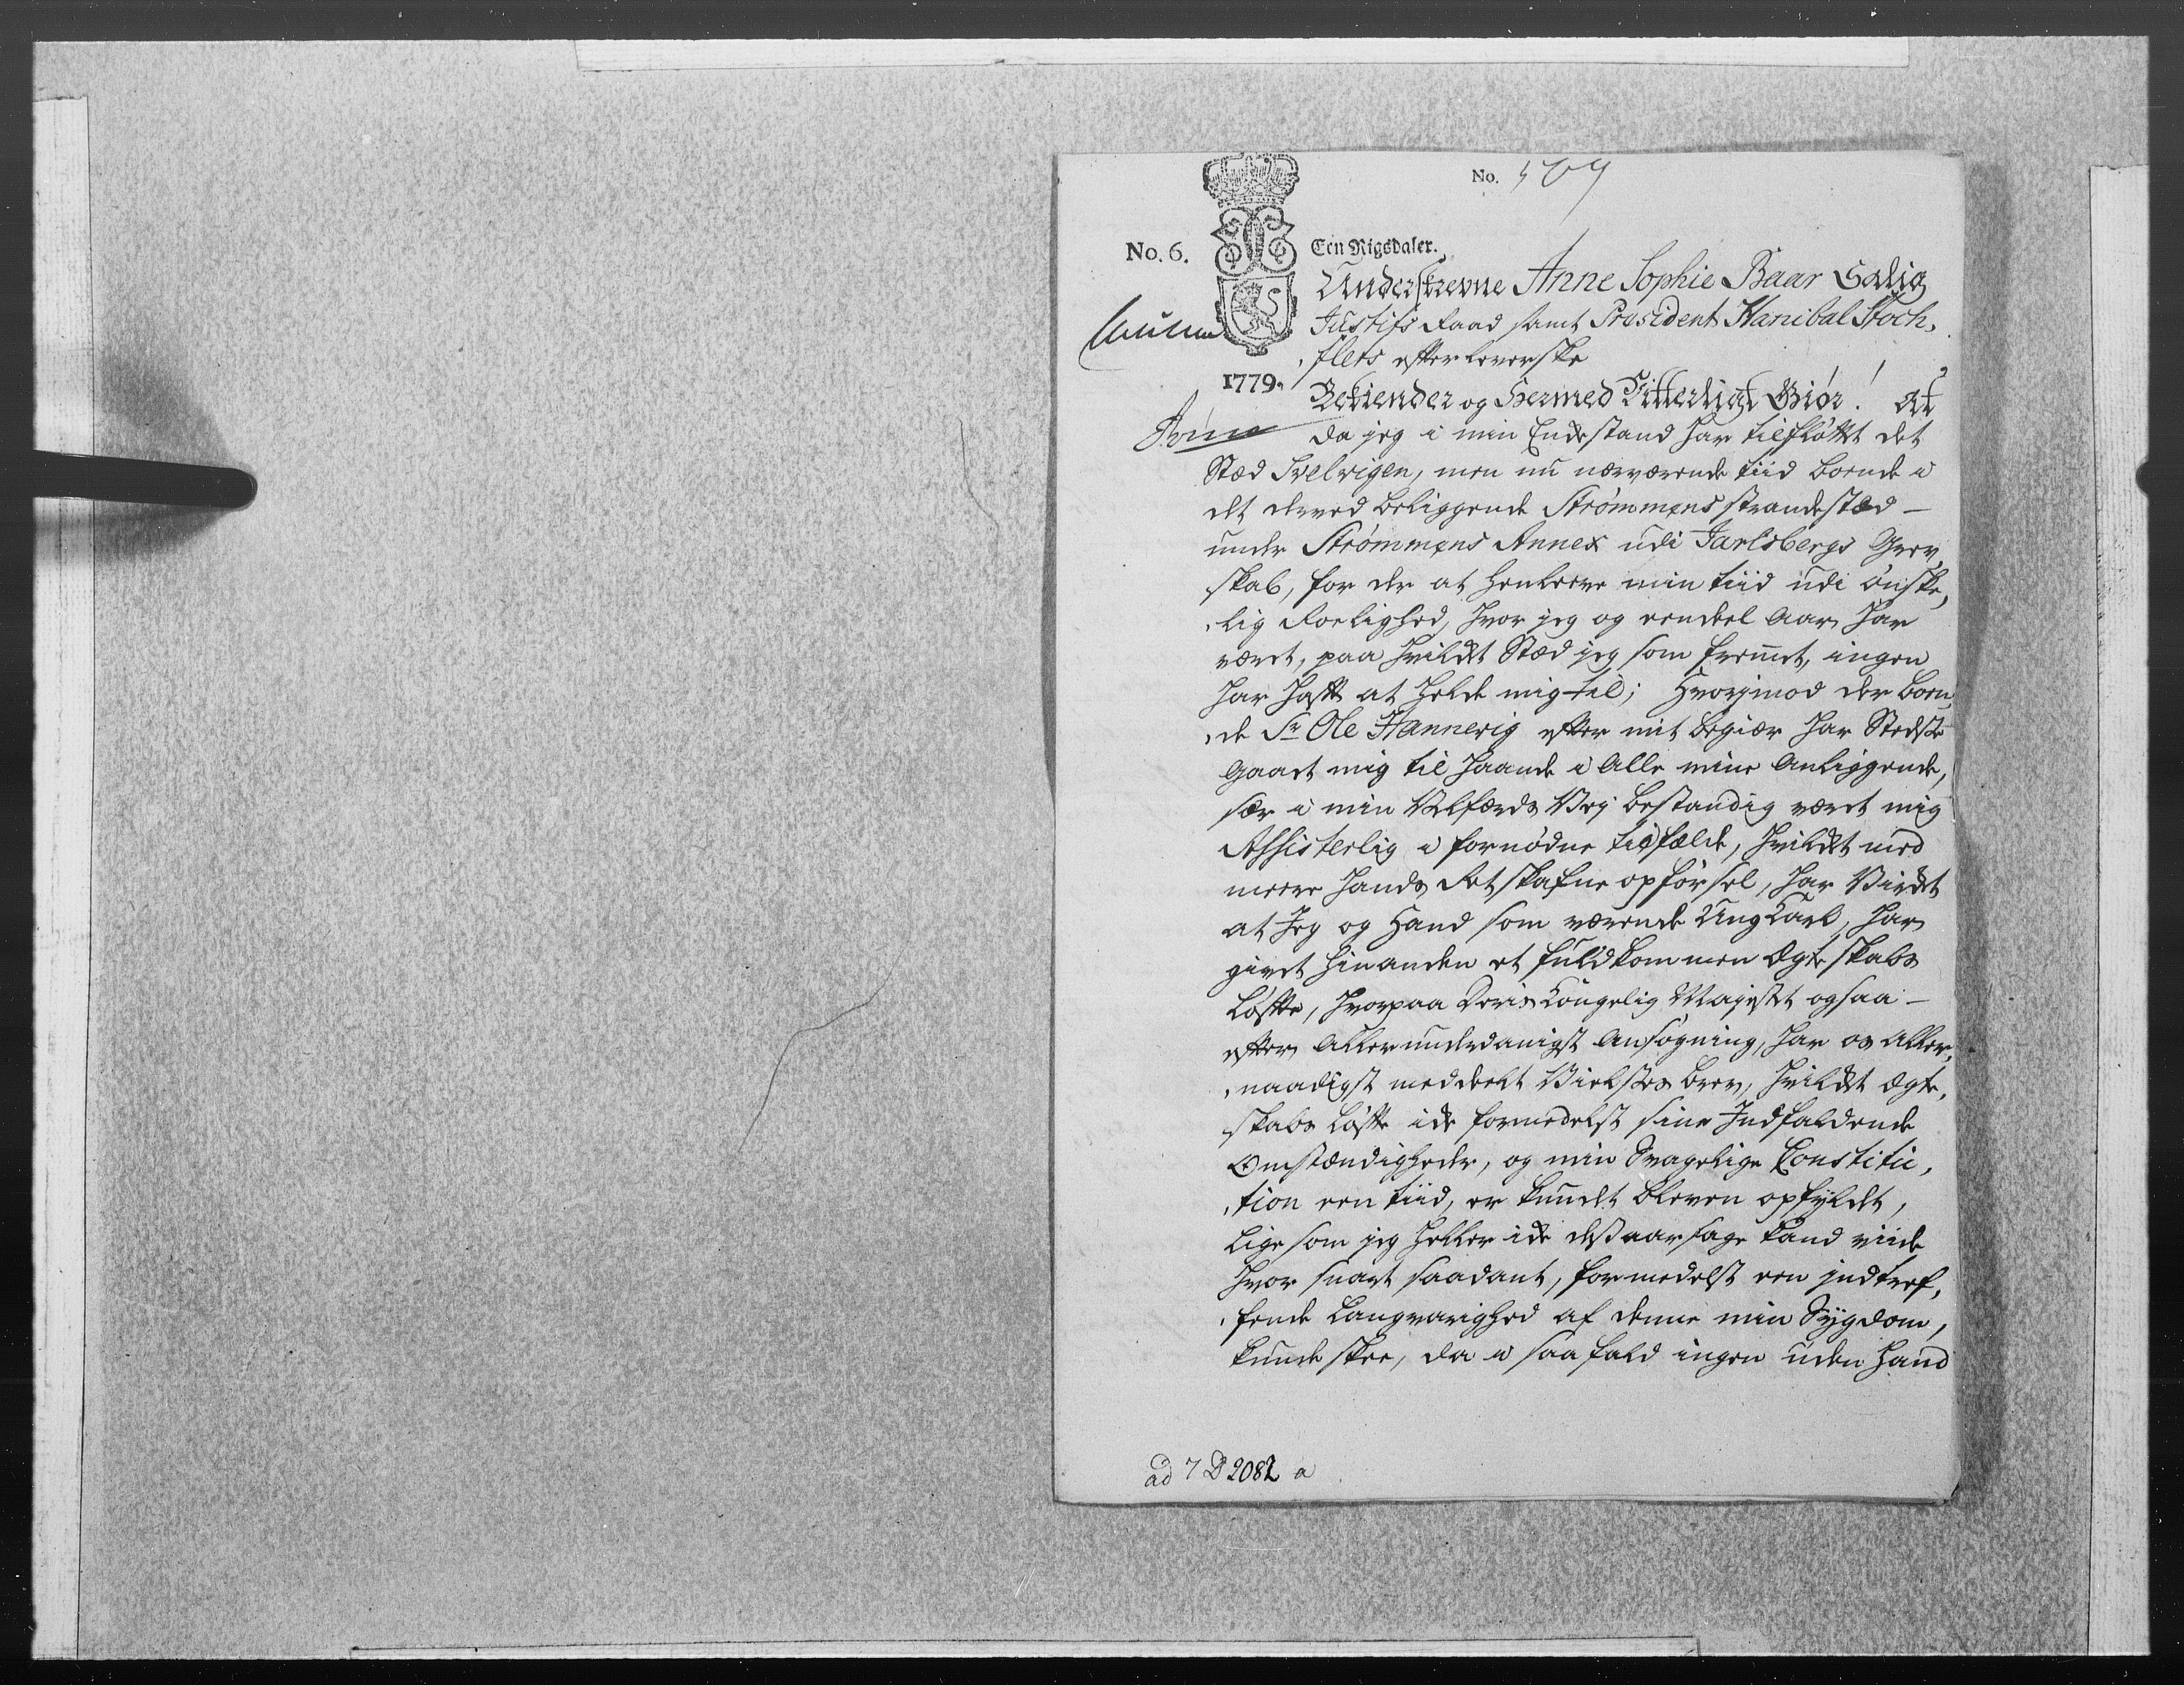 No. 509
No. 6.
Een Rigsdaler.
1779.
Underskrevne Anne Sophie Baar Salig
Justits Raad samt Præsident Hanibal Stoch,
,flets efterleverske
Bekiender og Hermed Vitterligt Giør! At
da jeg i min Enckestand har tilfløttet det
Stæd Svelvigen, men nu nærværende tiid boende i
det derved beliggende Strømmens strandestæd -
under Strømmens Annex udi Jarlsbergs Grev,
skab, for der at henleve min tiid udi ønske,
,lig Roelighed, hvor jeg og eendeel Aar har
været, paa hvilcket Stæd jeg som fremmet, ingen
har haft at holde mig til; Hvorimod der boen,
,de Sr Ole Hannevig efter mit begiær har Stedste
Gaaet mig til Haande i Alle mine Anliggende,
sær i min Velfærds Vej bestandig været mig
Assisterlig i fornødne tilfælde, hvilcket med
meere hands Retskafne opførsel, har Virket
at Jeg og Hand som værende Ung Karl, har
givet hinanden et fuldkommen Ægteskabs
Løfte, hvorpaa Deris Kongelig Majestet ogsaa -
efter Allerunderdanigst Ansøgning, har os Aller,
,naadigst meddeelt Vielses brev, hvilcket Ægte,
skabs Løfte icke formedelst sine Indfaldende
Omstændigheder, og min Svagelige Constitu,
,tion een tiid, er kundet bleven opfyldt,
lige som jeg heller icke desaarsage kand viide
hvor snart saadant, formedelst een indtref,
,fende langvarighed af denne min Sygdom,
kunde skee, da i saa fald ingen uden Hand
ad 7 D 2082 a